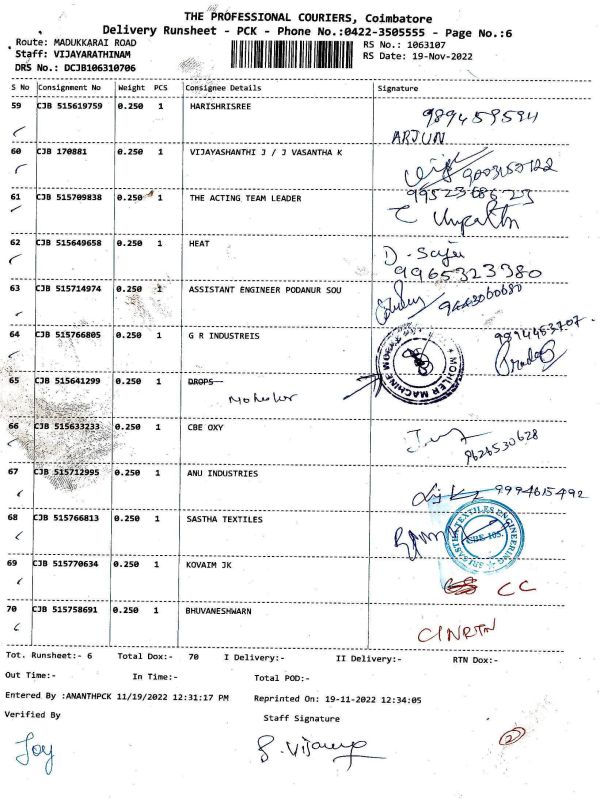 THE PROFESSIONAL COURIERS, Coimbatore
Delivery Runsheet - PCK - Phone No.:0422-3505555 - Page No.:6
Route: MADUKKARAI ROAD RS No.: 1063107
Staff: VIJAYARATHINAM RS Date: 19-Nov-2022
DRS No.: DCJB106310706
S No Consignment No Weight PCS Consignee Details Signature
59 CJB 515619759 0.250 1 HARISHRISREE 9894595594
ARJUN
60 CJB 170881 0.250 1 VIJAYASHANTHI J / J VASANTHA K
61 CJB 515709838 0.250 1 THE ACTING TEAM LEADER
62 CJB 515649658 0.250 1 HEAT D. Saju
9965323380
63 CJB 515714974 0.250 1 ASSISTANT ENGINEER PODANUR SOU 9443060680
64 CJB 515766805 0.250 1 G R INDUSTREIS 9894463707
MOHLER MACHINE WORKS
65 CJB 515641299 0.250 1 DROPS
66 CJB 515633233 0.250 1 CBE OXY 9626530628
67 CJB 515712995 0.250 1 ANU INDUSTRIES 9994615492
68 CJB 515766813 0.250 1 SASTHA TEXTILES
SRI SASTHA TEXTILES ENGINEERING
CBE-105.
69 CJB 515770634 0.250 1 KOVAIM JK CC
70 CJB 515758691 0.250 1 BHUVANESHWARN C/NRTN
Tot. Runsheet:- 6 Total Dox:- 70 I Delivery:- II Delivery:- RTN Dox:-
Out Time:- In Time:- Total POD:-
Entered By :ANANTHPCK 11/19/2022 12:31:17 PM Reprinted On: 19-11-2022 12:34:05
Verified By Staff Signature
Joy S. Vijay 2